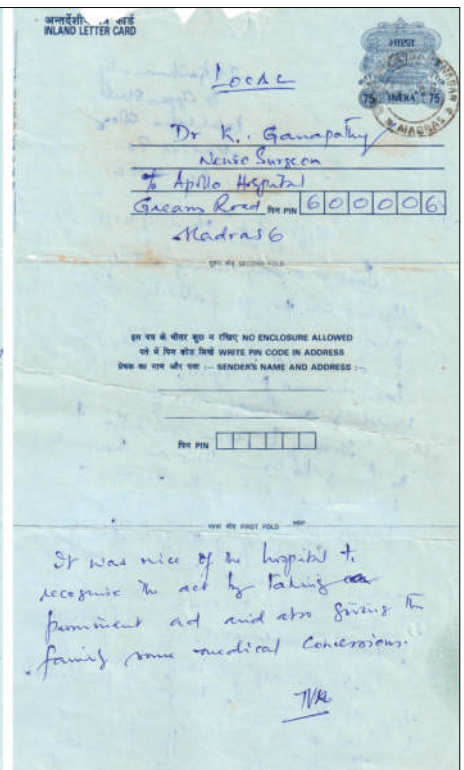 अन्तर्देशीय पत्र कार्ड
INLAND LETTER CARD
भारत
75 INDIA 75
MADRAS
Local
Dr K. Ganapathy
Neuro Surgeon
℅ Apollo Hospital
Greams Road पिन PIN 600006
Madras 6
दूसरा मोड़ SECOND FOLD
इस पत्र के भीतर कुछ न रखिए NO ENCLOSURE ALLOWED
पते में पिन कोड लिखें WRITE PIN CODE IN ADDRESS
प्रेषक का नाम और पता :— SENDER'S NAME AND ADDRESS :—
पिन PIN
पहला मोड़ FIRST FOLD
It was nice of the hospital to
recognise the act by taking a
prominent ad and also giving the
family some medical concessions.